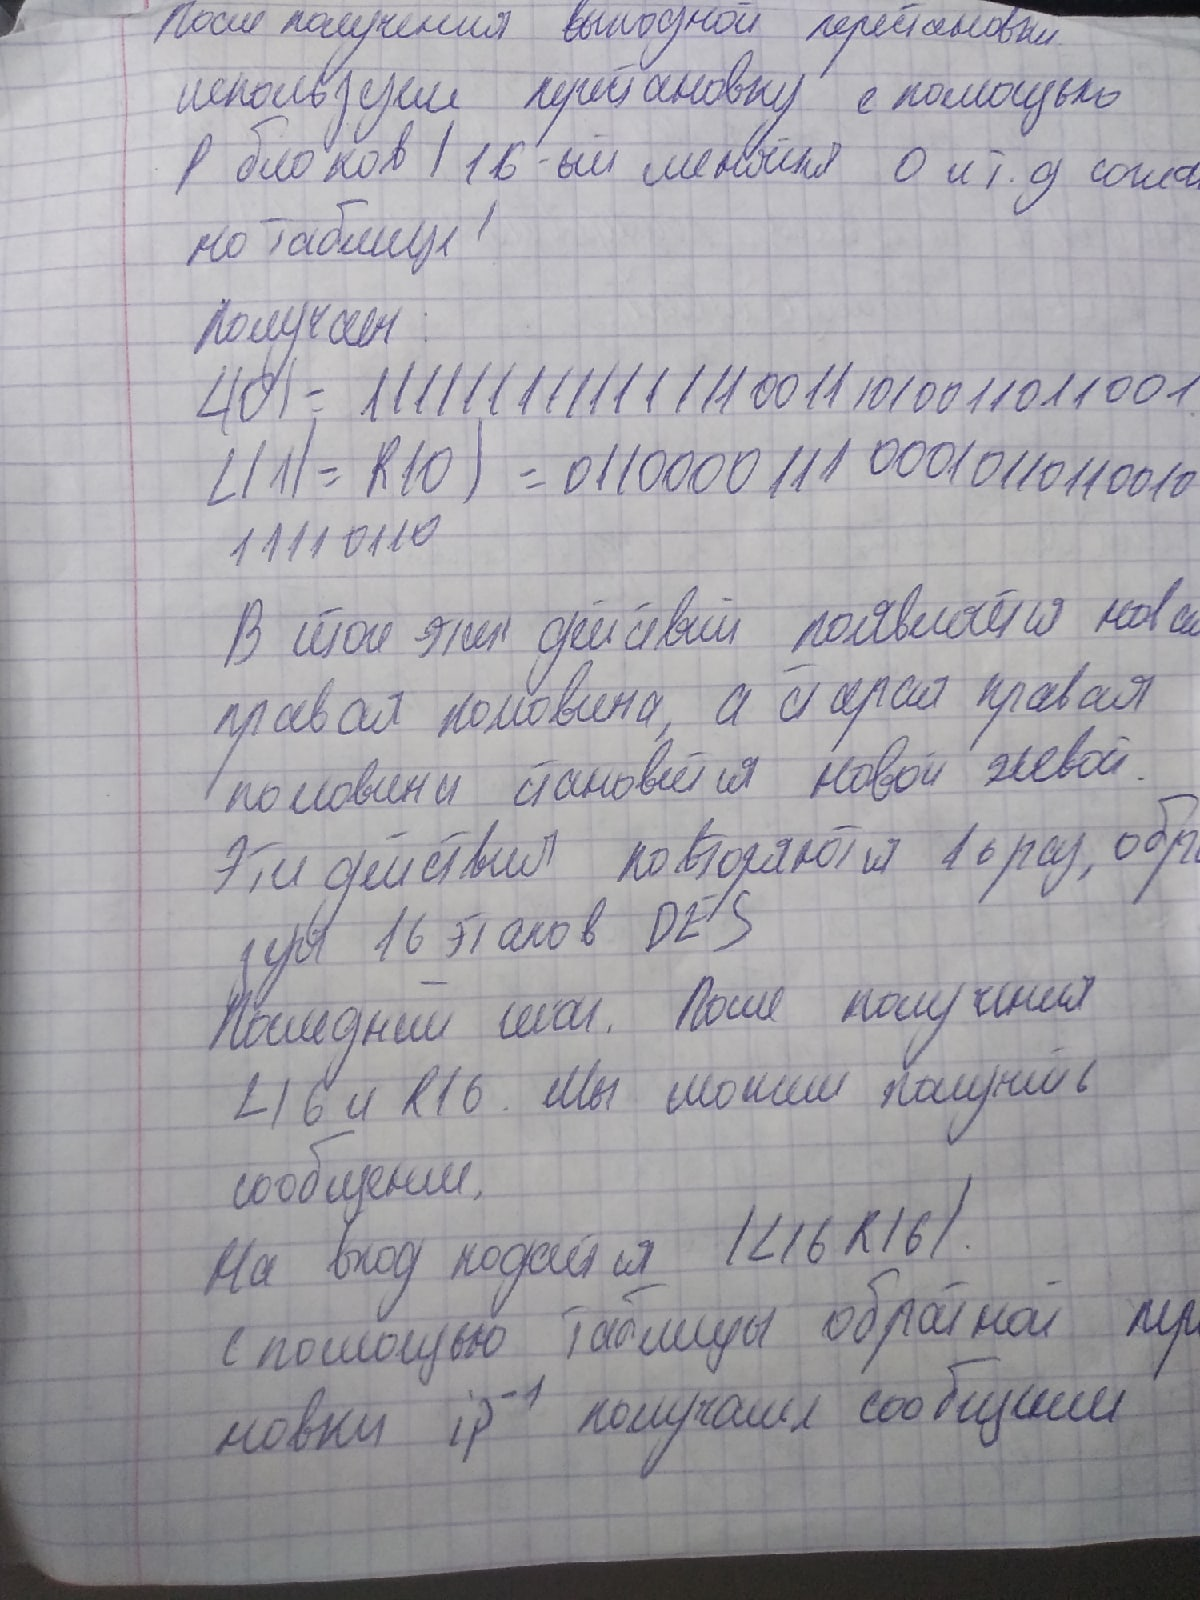 После получения выходной перестановки
используем перестановку с помощью
P блоков (16-ый меняйся 0 и т.д соглас
но таблице)
получаем:
L(0) = 1111111111111111001110100110110 01
L(1) = R(0) = 011000011100010110110010
11110110
В итоге этих действий появляется новая
правая половина, а старая правая
половина становится новой левой.
Эти действия повторяются 16 раз, обра
зуя 16 этапов DES
Последний шаг. После получения
L16 и R16. Мы можем получить
сообщение.
На вход подаётся (L16 R16).
с помощью таблицы обратной пер
новки ip⁻¹ получаем сообщение